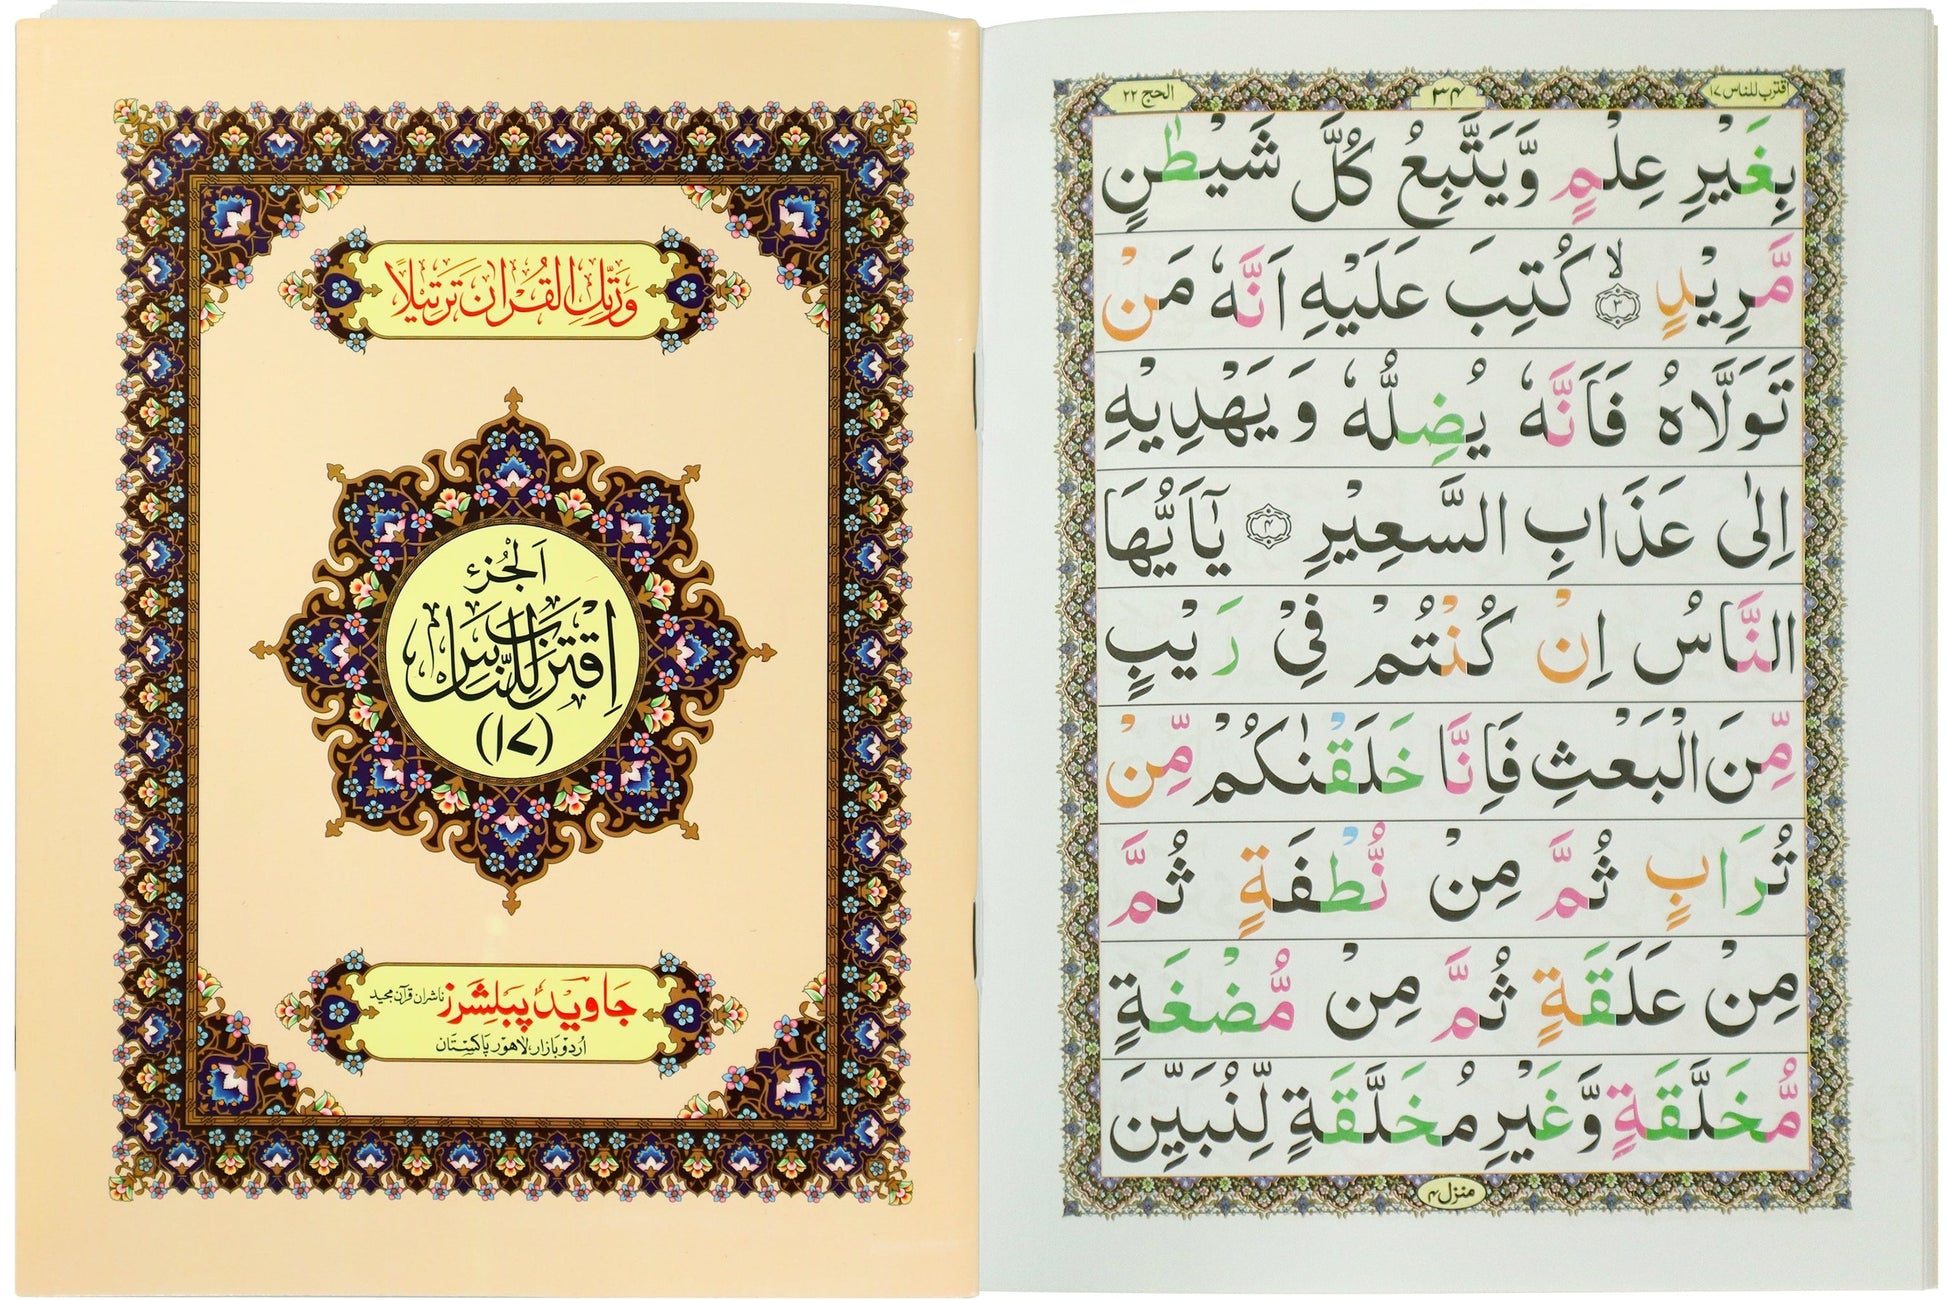 وَرَتِّلِ الْقُرْاٰنَ تَرْتِيْلًا
اَلْجُزْءُ
اِقْتَرَبَ لِلنَّاسِ
(۱۷)
جاوید پبلشرز ناشران قرآن مجید
اُردو بازار، لاهور پاکستان
اقترب للناس ۱۷
۳۴
الحج ۲۲
بِغَيْرِ عِلْمٍ وَّيَتَّبِعُ كُلَّ شَيْطٰنٍ
مَّرِيْدٍ ۙ﴿۳﴾ كُتِبَ عَلَيْهِ اَنَّهٗ مَنْ
تَوَلَّاهُ فَاَنَّهٗ يُضِلُّهٗ وَيَهْدِيْهِ
اِلٰى عَذَابِ السَّعِيْرِ ﴿۴﴾ يٰۤاَيُّهَا
النَّاسُ اِنْ كُنْتُمْ فِيْ رَيْبٍ
مِّنَ الْبَعْثِ فَاِنَّا خَلَقْنٰكُمْ مِّنْ
تُرَابٍ ثُمَّ مِنْ نُّطْفَةٍ ثُمَّ
مِنْ عَلَقَةٍ ثُمَّ مِنْ مُّضْغَةٍ
مُّخَلَّقَةٍ وَّغَيْرِ مُخَلَّقَةٍ لِّنُبَيِّنَ
منزل ۴